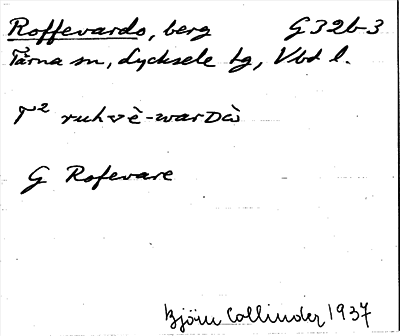 Roffevardo, berg G32b-3
Tärna sn, Lycksele lg, Vbt l.
T² ruhvè-warDà
G Rofevare
Björn Collinder 1937